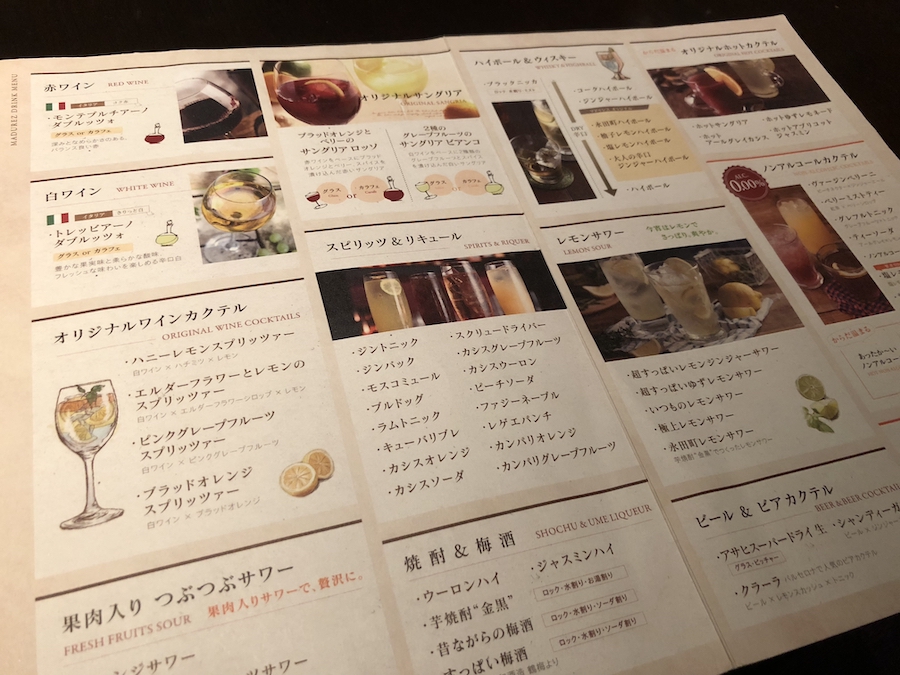 MADUREZ DRINK MENU
赤ワイン RED WINE
イタリア
・モンテプルチアーノ
ダブルッツォ
グラス or カラフェ
深みとなめらかさのある、
バランス良い赤
白ワイン WHITE WINE
イタリア
・トレッビアーノ
ダブルッツォ
グラス or カラフェ
豊かな果実味と柔らかな酸味、
フレッシュな味わいを楽しめる辛口白
オリジナルワインカクテル
ORIGINAL WINE COCKTAILS
・ハニーレモンスプリッツァー
白ワイン × ハチミツ × レモン
・エルダーフラワーとレモンの
スプリッツァー
白ワイン × エルダーフラワーシロップ × レモン
・ピンクグレープフルーツ
スプリッツァー
白ワイン × ピンクグレープフルーツ
・ブラッドオレンジ
スプリッツァー
白ワイン × ブラッドオレンジ
果肉入り つぶつぶサワー
FRESH FRUITS SOUR 果肉入りサワーで、贅沢に。
オリジナルサングリア
ORIGINAL SANGRIA
ブラッドオレンジと
ベリーの
サングリア ロッソ
赤ワインをベースにブラッド
オレンジとベリー、スパイスを
漬け込んだ赤いサングリア
2種の
グレープフルーツの
サングリア ビアンコ
白ワインをベースに2種類の
グレープフルーツとスパイス
を漬け込んだ白いサングリア
グラス or カラフェ
グラス or カラフェ
スピリッツ&リキュール SPIRITS & RIQUER
・ジントニック
・ジンバック
・モスコミュール
・ブルドッグ
・ラムトニック
・キューバリブレ
・カシスオレンジ
・カシスソーダ
・スクリュードライバー
・カシスグレープフルーツ
・カシスウーロン
・ピーチソーダ
・ファジーネーブル
・レゲエパンチ
・カンパリオレンジ
・カンパリグレープフルーツ
焼酎&梅酒 SHOCHU & UME LIQUEUR
・ウーロンハイ
・芋焼酎“金黒”
・昔ながらの梅酒
・すっぱい梅酒
・ジャスミンハイ
ロック・水割り・お湯割り
ロック・水割り・ソーダ割り
ロック・水割り・ソーダ割り
ハイボール&ウィスキー
・ブラックニッカ
DRY
辛口
・コークハイボール
・ジンジャーハイボール
・永田町ハイボール
・柚子レモンハイボール
・塩レモンハイボール
・大人の辛口
ジンジャーハイボール
・ハイボール
レモンサワー
LEMON SOUR
今宵はレモンで
さっぱり、爽やか。
・超すっぱいレモンジンジャーサワー
・超すっぱいゆずレモンサワー
・いつものレモンサワー
・極上レモンサワー
・永田町レモンサワー
芋焼酎“金黒”でつくったレモンサワー
ビール & ビアカクテル
BEER&BEER COCKTAIL
・アサヒスーパードライ 生
グラス・ピッチャー
・クラーラ バルセロナで人気のビアカクテル
ビール × レモンスカッシュ × トニック
・シャンディーガ
からだ温まる
オリジナルホットカクテル
・ホットサングリア
・ホット
アールグレイカシス
・ホットゆずレモネード
・ホットアプリコット
ジャスミン
ALC.
0.00%
ノンアルコールカクテル
・ヴァージンベリーニ
・ベリーミスティー
・グレフルトニック
・ティーソーダ
・ノンアルコール
・塩レ
からだ温まる
あったか〜い
ノンアルコー